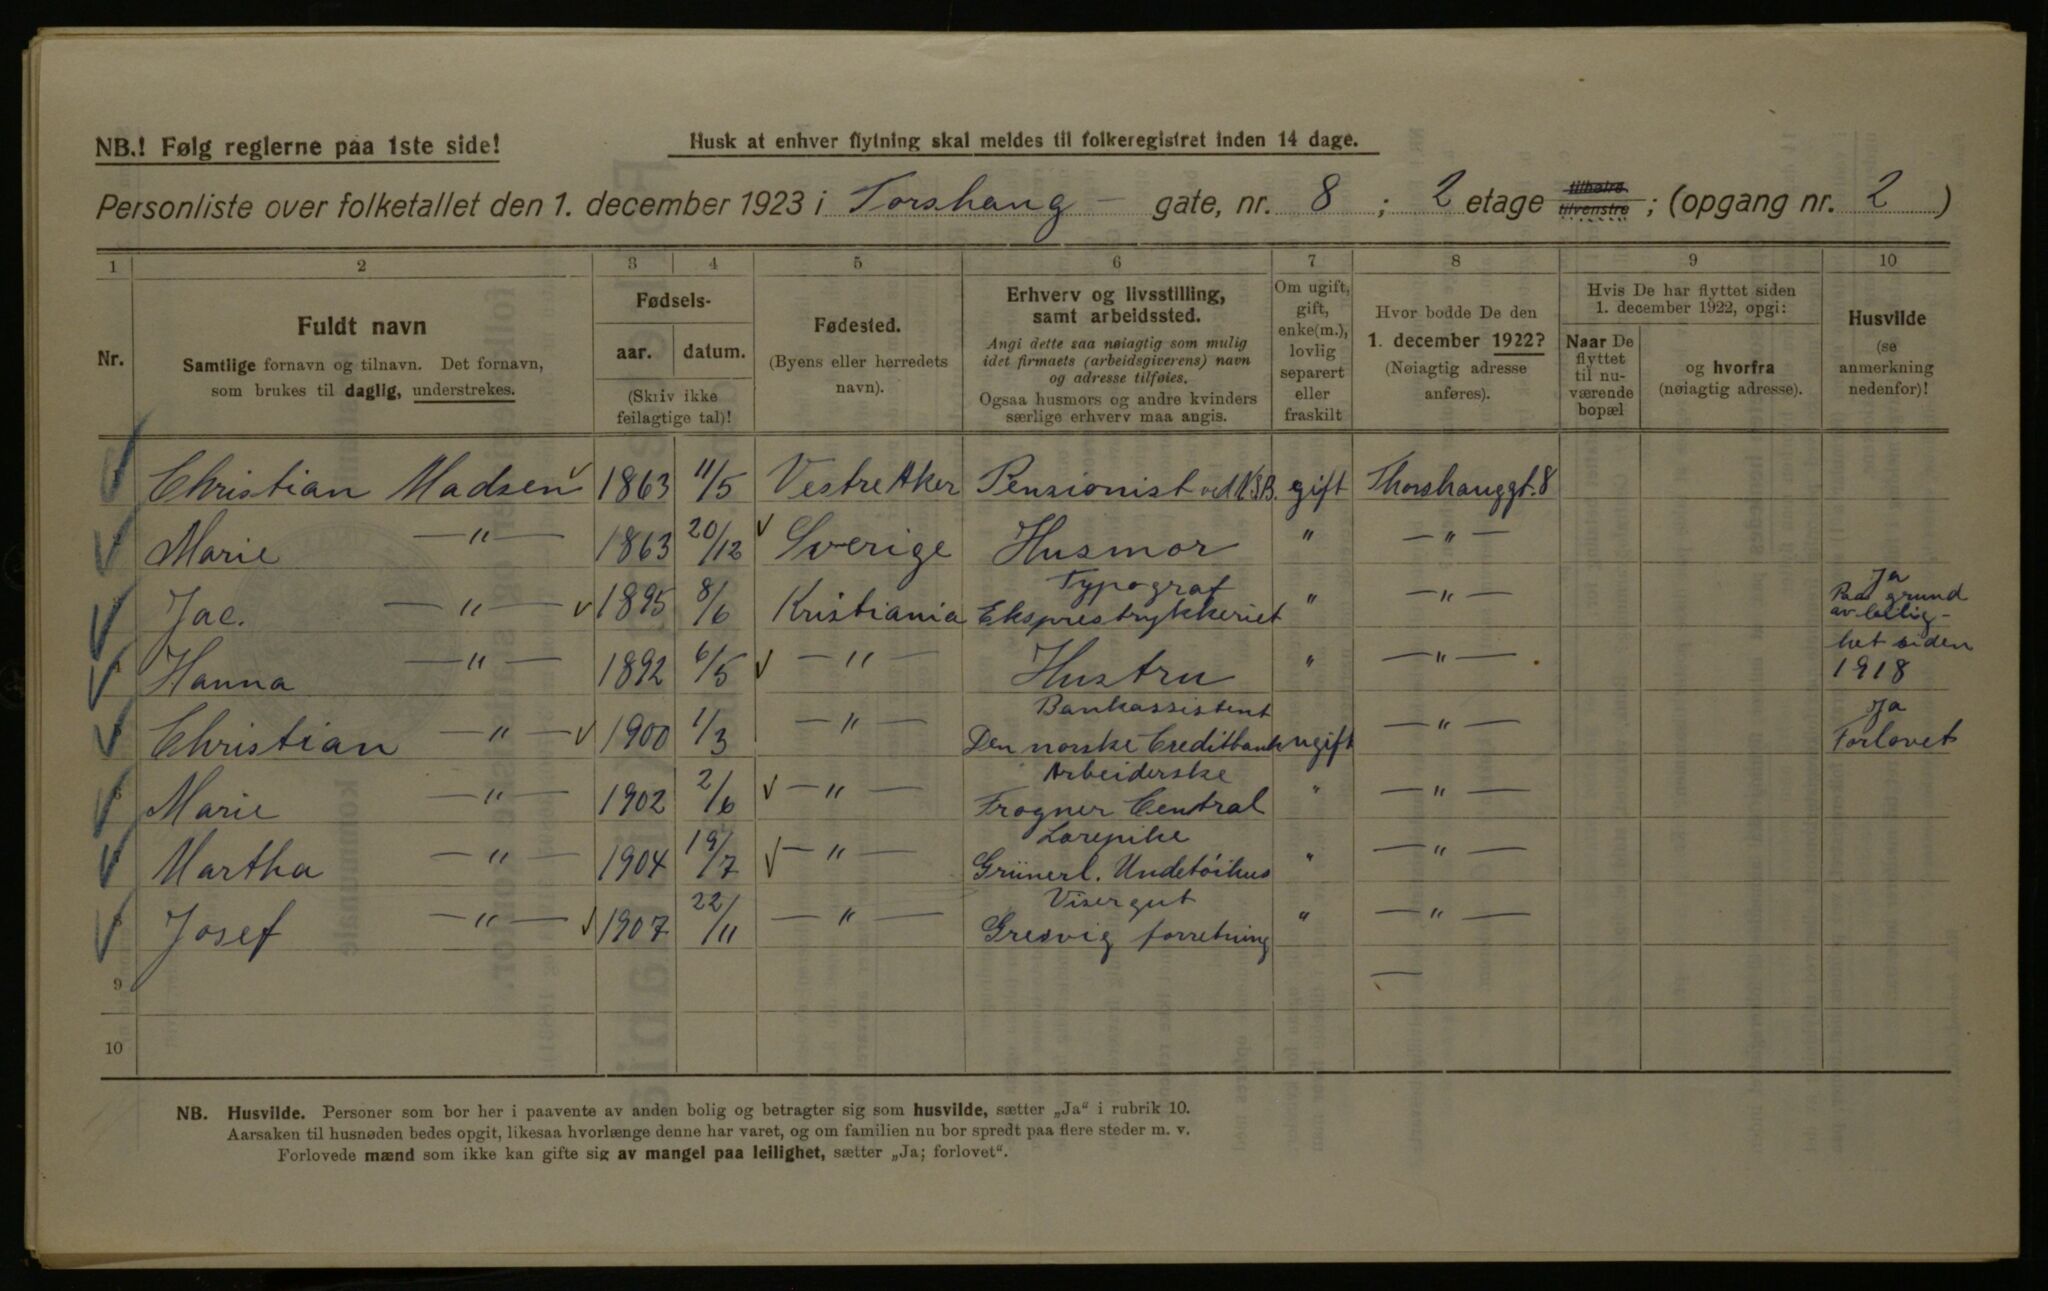 NB.! Følg reglerne paa 1ste side!
Husk at enhver flytning skal meldes til folkeregistret inden 14 dage.
Personliste over folketallet den 1. december 1923 i Torshaug - gate, nr. 8 ; 2 etage tilhøire tilvenstre ; (opgang nr. 2 )
1 2 3 4 5 6 7 8 9 10
Nr.
Fuldt navn
Samtlige fornavn og tilnavn. Det fornavn,
som brukes til daglig, understrekes.
Fødsels-
aar. datum.
(Skriv ikke
feilagtige tal)!
Fødested.
(Byens eller herredets
navn).
Erhverv og livsstilling,
samt arbeidssted.
Angi dette saa nøiagtig som mulig
idet firmaets (arbeidsgiverens) navn
og adresse tilføies.
Ogsaa husmors og andre kvinders
særlige erhverv maa angis.
Om ugift,
gift,
enke(m.),
lovlig
separert
eller
fraskilt
Hvor bodde De den
1. december 1922?
(Nøiagtig adresse
anføres).
Hvis De har flyttet siden
1. december 1922, opgi:
Naar De
flyttet
til nu-
værende
bopæl
og hvorfra
(nøiagtig adresse).
Husvilde
(se
anmerkning
nedenfor)!
Christian Madsen 1863 11/5 Vestre Aker Pensionist ved N.S.B. gift Thorshauggt. 8
Marie —"— 1863 20/12 Sverige Husmor " —"—
Jac. —"— 1895 8/6 Kristiania Typograf Eksprestrykkeriet " —"— Ja Paa grund av leilig-
Hanna —"— 1892 6/5 —"— Hustru " —"— het siden 1918
Christian —"— 1900 1/3 —"— Bankassistent Den norske Creditbank ugift —"— Ja Forlovet
Marie —"— 1902 2/6 —"— Arbeiderske Frogner Central " —"—
Martha —"— 1904 19/7 —"— Lærepike Grünerl. Undetöihus " —"—
Josef —"— 1907 22/11 —"— Visergut Gresvig forretning " —"—
9 —
10
NB. Husvilde. Personer som bor her i paavente av anden bolig og betragter sig som husvilde, sætter „Ja“ i rubrik 10.
Aarsaken til husnøden bedes opgit, likesaa hvorlænge denne har varet, og om familien nu bor spredt paa flere steder m. v.
Forlovede mænd som ikke kan gifte sig av mangel paa leilighet, sætter „Ja; forlovet“.